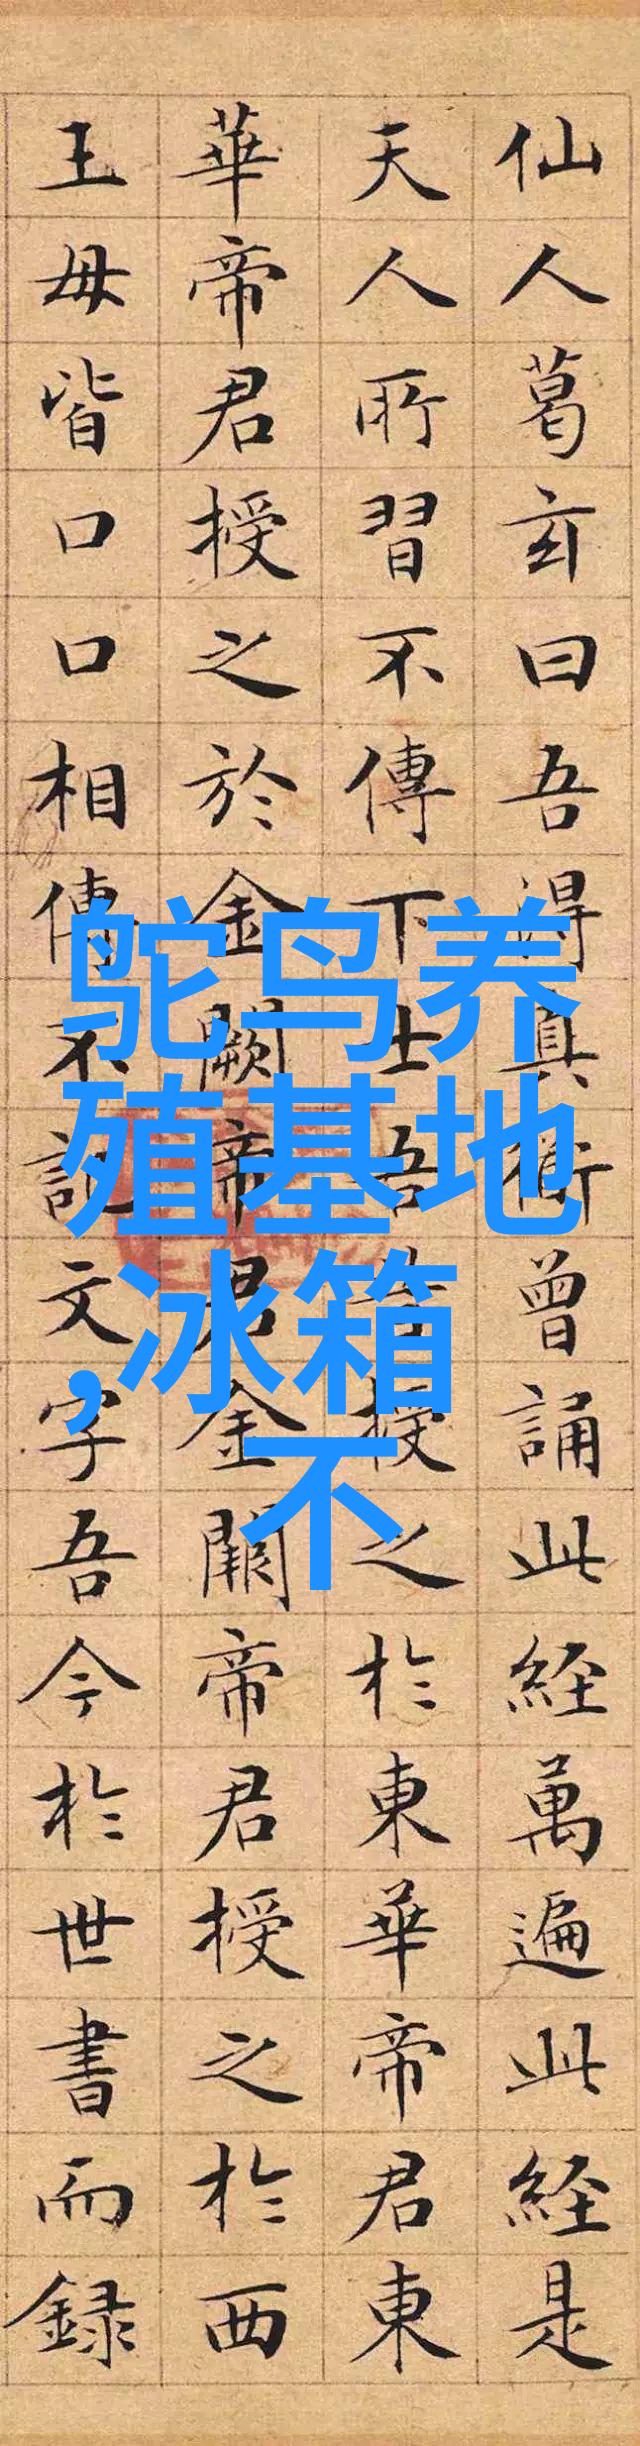 仙人葛玄曰吾得真衜曾誦此経萬遍此経是
天人所習不傳下士吾昔授之於東華帝君東
華帝君授之於金闕帝君金闕帝君授之於西
王母皆口口相傳不記文字吾今於世書而録
鸵鸟养
殖基地
,冰箱
不